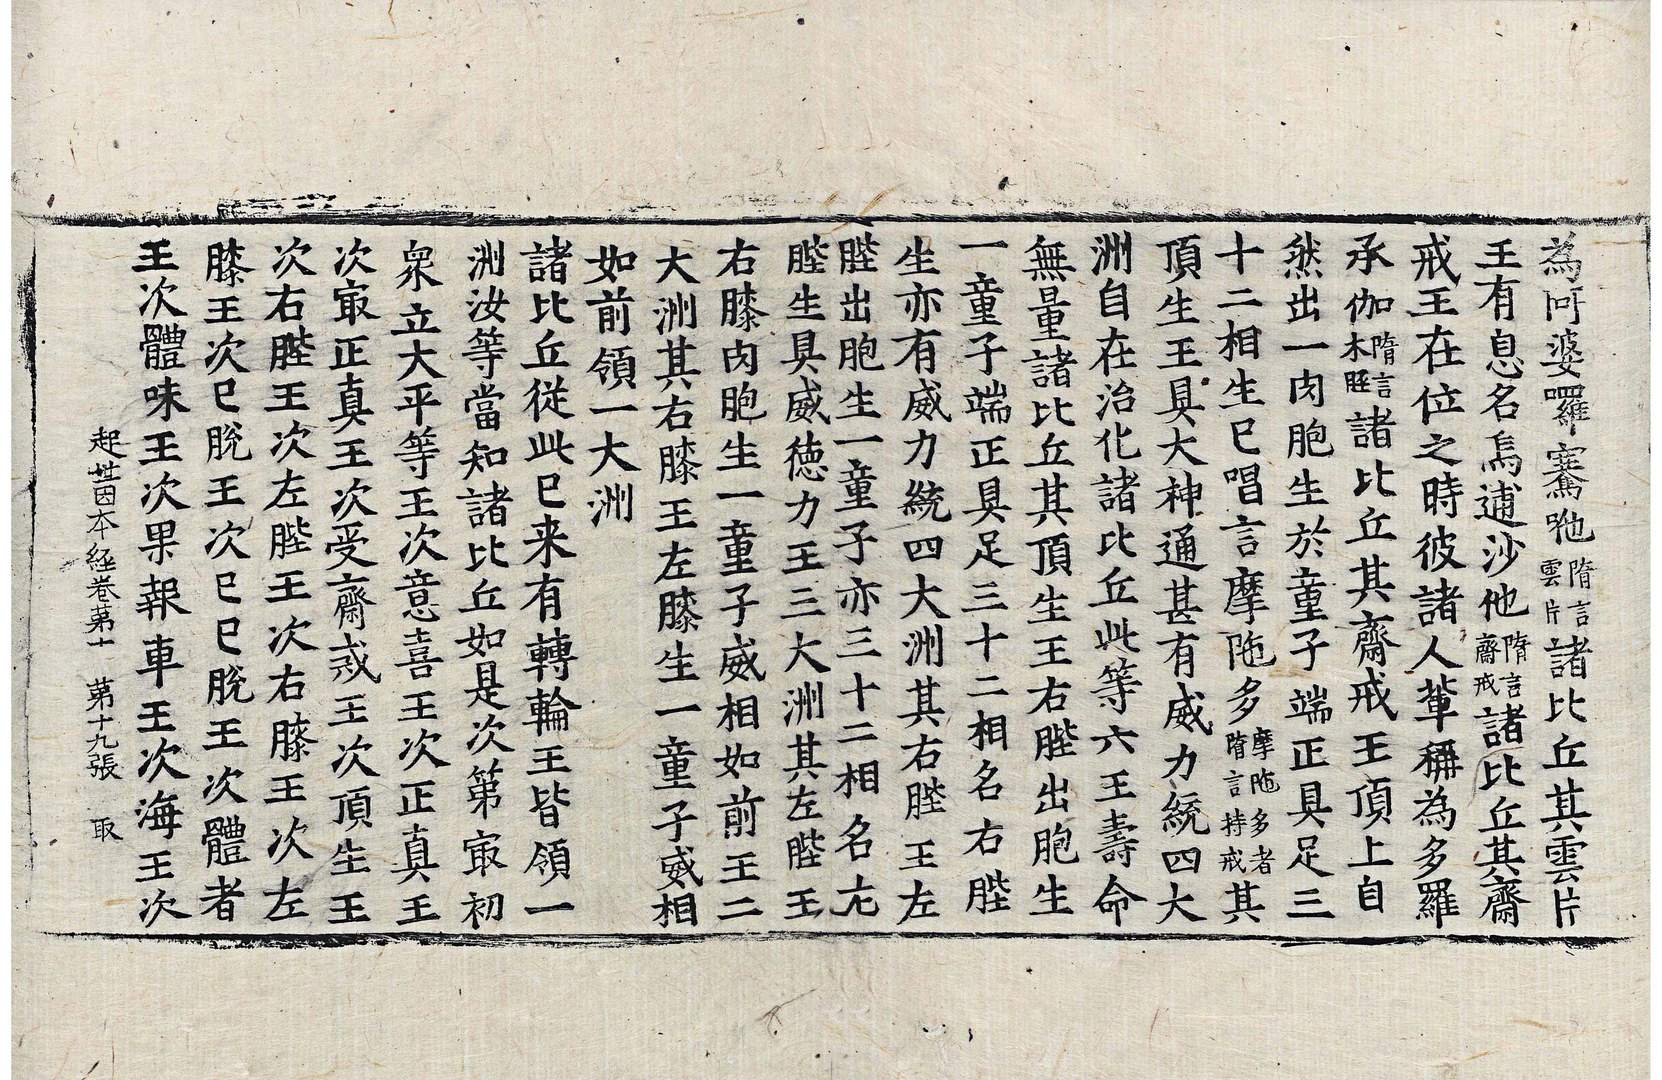 為阿婆囉騫咃隋言雲片諸比丘其雲片
王有息名烏逋沙他隋言齋戒諸比丘其齋
戒王在位之時彼諸人輩稱為多羅
承伽隋言木脛諸比丘其齋戒王頂上自
然出一肉胞生於童子端正具足三
十二相生已唱言摩陁多摩陁多者隋言持戒其
頂生王具大神通甚有威力統四大
洲自在治化諸比丘此等六王壽命
無量諸比丘其頂生王右䏶出胞生
一童子端正具足三十二相名右䏶
生亦有威力統四大洲其右䏶王左
䏶出胞生一童子亦三十二相名左
䏶生具威德力王三大洲其左䏶王
右膝肉胞生一童子威相如前王二
大洲其右膝王左膝生一童子威相
如前領一大洲
諸比丘從此已来有轉輪王皆領一
洲汝等當知諸比丘如是次第㝡初
衆立大平等王次意喜王次正真王
次㝡正真王次受齋戒王次頂生王
次右䏶王次左䏶王次右膝王次左
膝王次已脫王次已已脫王次體者
王次體味王次果報車王次海王次
起世因本経卷苐十　苐十九張　取